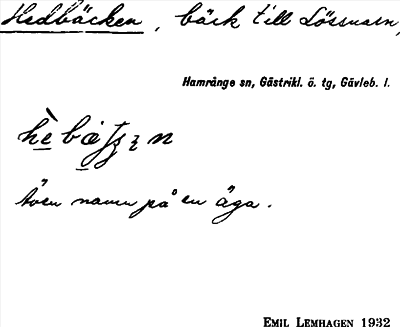 Hedbäcken, bäck till Lössnaren,
Hamrånge sn, Gästrikl. ö. tg, Gävleb. l.
även namn på en äga.
EMIL LEMHAGEN 1932